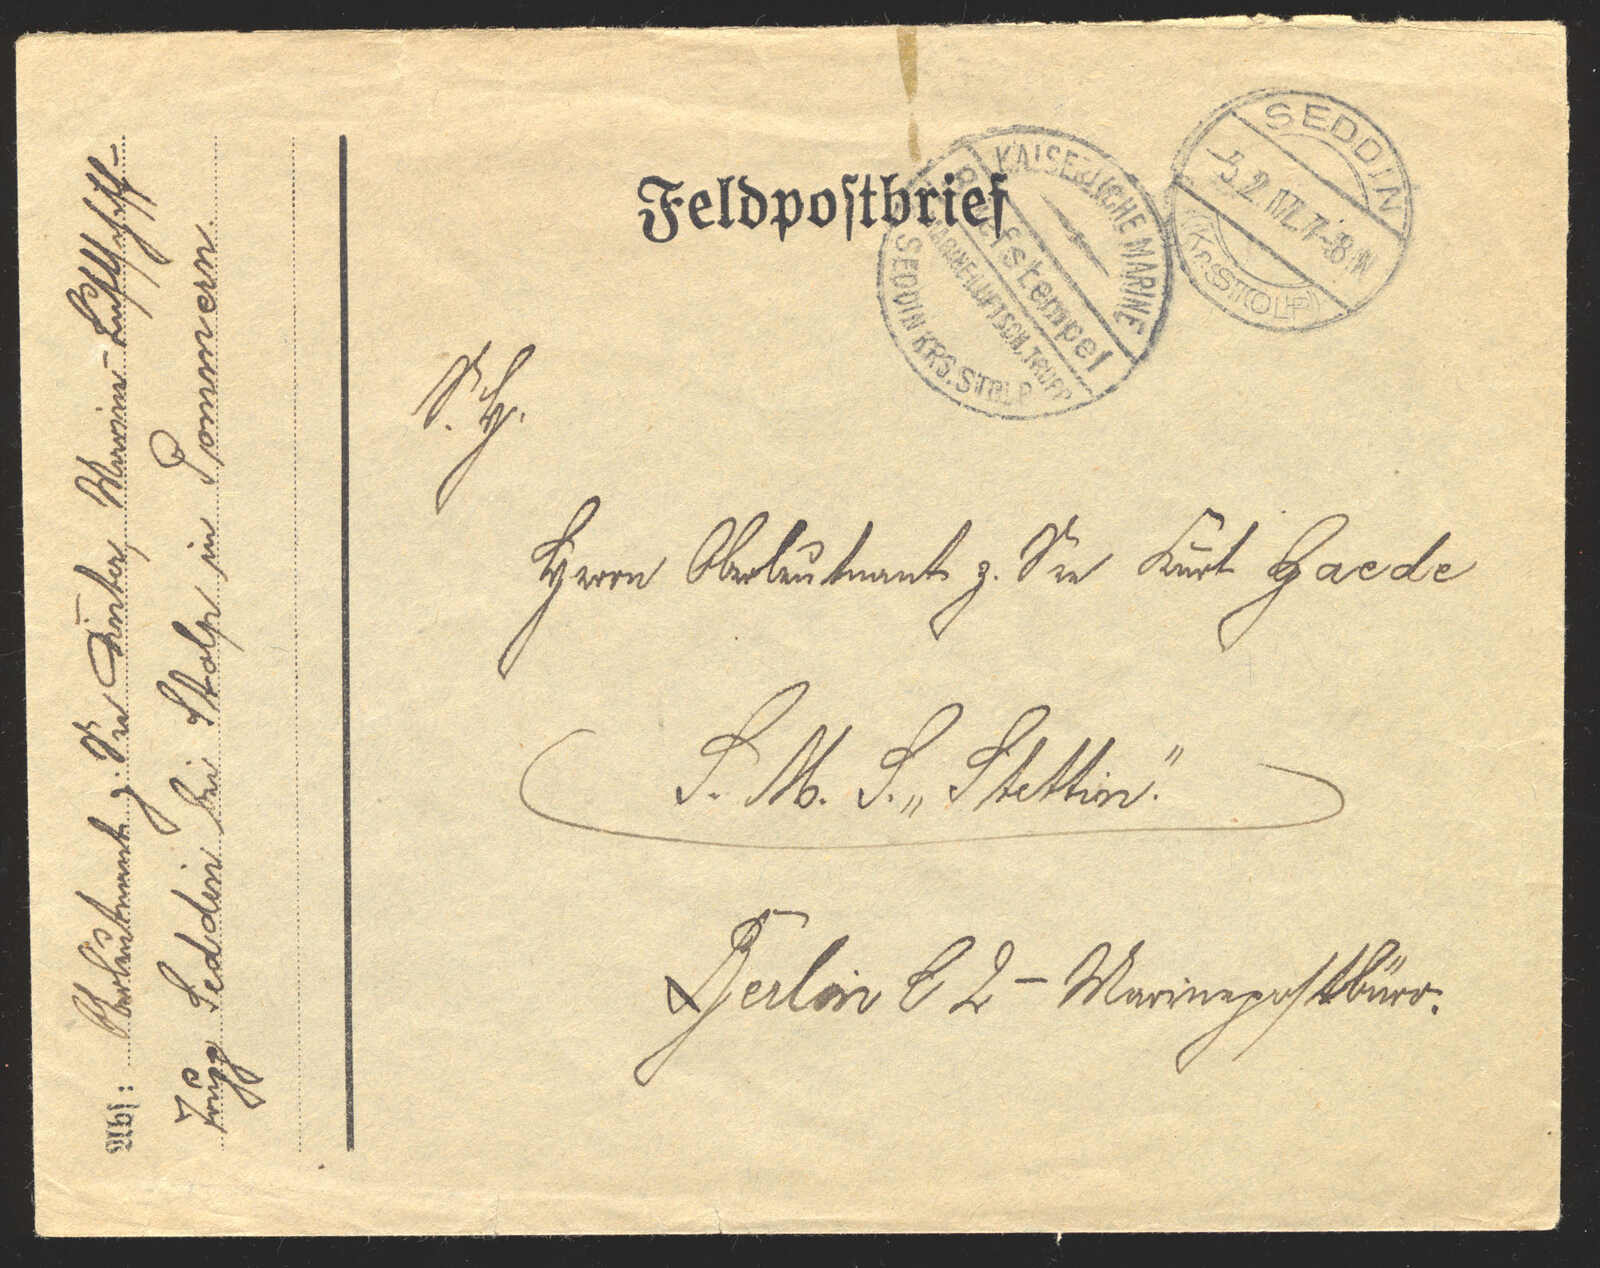 Feldpostbrief
KAISERLICHE MARINE
Briefstempel
MARINE-LUFTSCH. TRUPP
SEDDIN KRS. STOLP
SEDDIN
5.2.17. 7-8 N
(Kr. STOLP)
S. H.
Herrn Oberleutnant z. See Kurt Gaede
S. M. S. „Stettin".
Berlin C 2 – Marinepostbüro.
Abs: Oberleutnant z. See Marine-Luftschiff-
Trupp Seddin bei Stolp in Pommern.